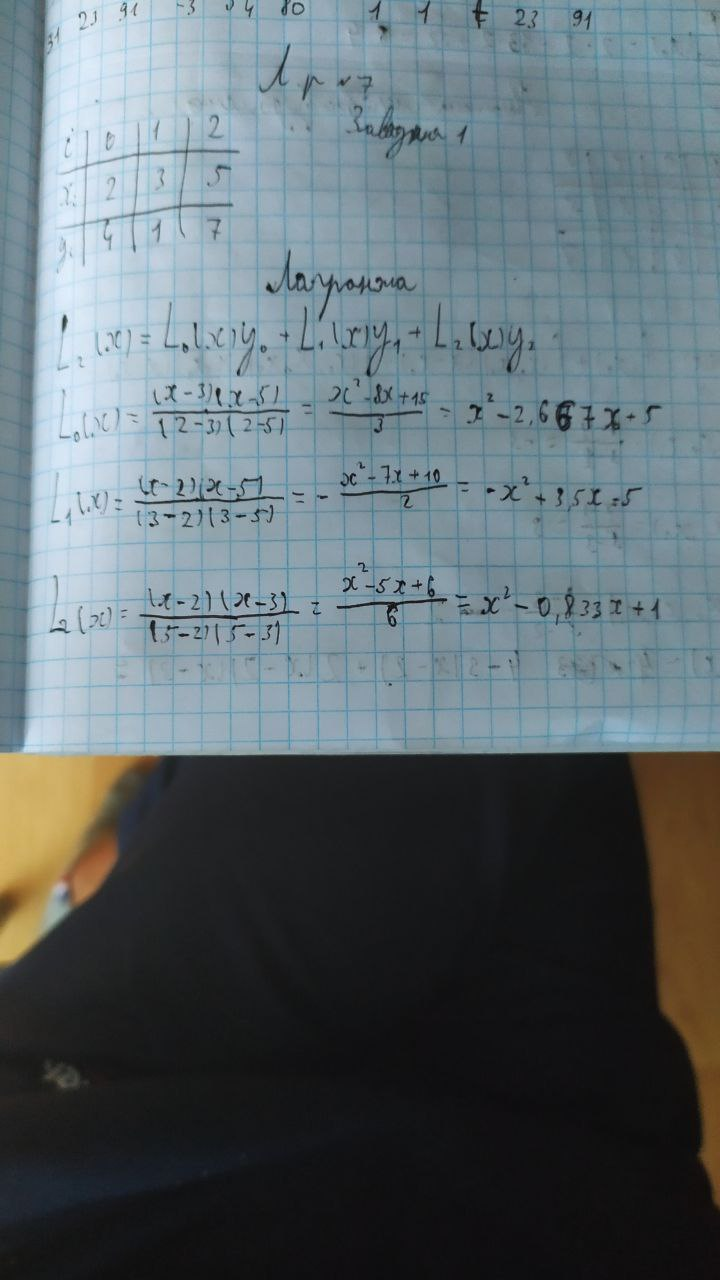 31 23 91 -3 54 80 1 1 7 23 91
Л.р №7
Завдання 1
i 0 1 2
xᵢ 2 3 5
yᵢ 4 1 7
Лагранжа
L₂(x) = L₀(x)y₀ + L₁(x)y₁ + L₂(x)y₂
L₀(x) = (x-3)(x-5)/(2-3)(2-5) = x²-8x+15/3 = x²-2,667x+5
L₁(x) = (x-2)(x-5)/(3-2)(3-5) = - x²-7x+10/2 = -x²+3,5x-5
L₂(x) = (x-2)(x-3)/(5-2)(5-3) = x²-5x+6/6 = x²-0,833x+1